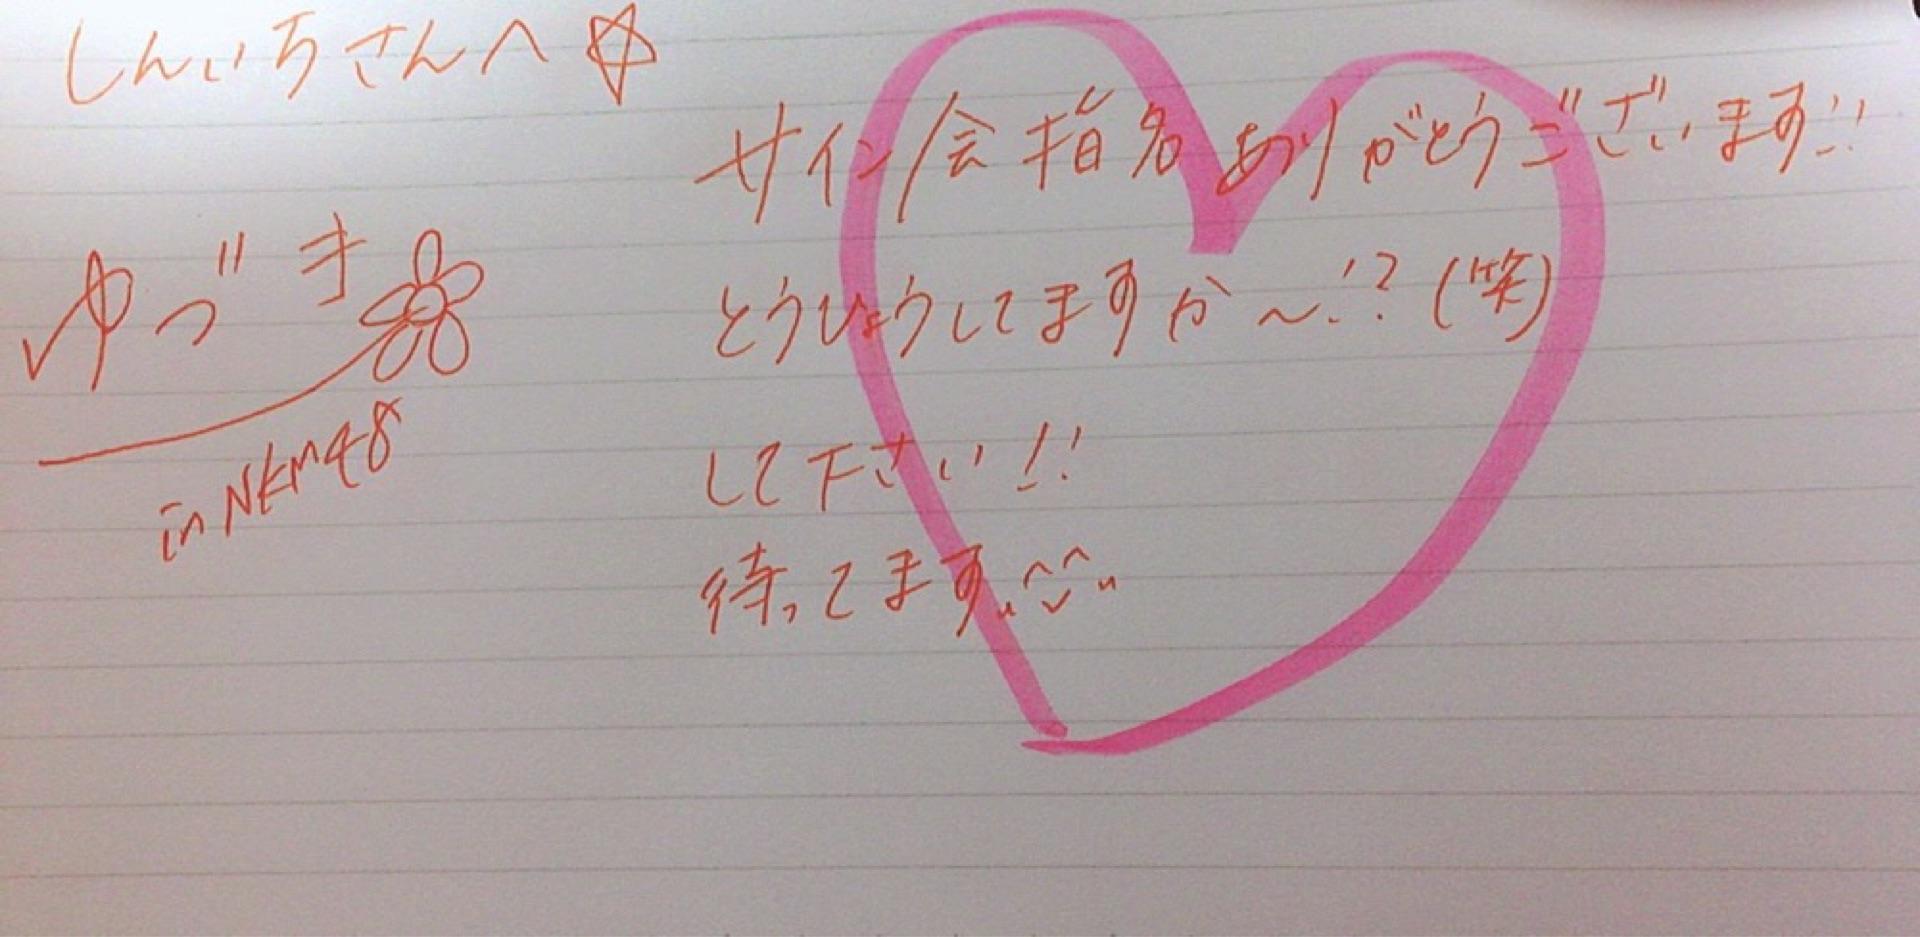 しんいちさんへ☆
サイン会指名ありがとうございます!!
とうひょうしてますか～!?(笑)
して下さい!!
待ってます
ゆづき
in NKM48